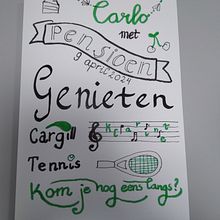 Carlo
met
Pensioen
9 april 2024
Genieten
Cargill
Klarinet
Tennis
Kom je nog eens langs?